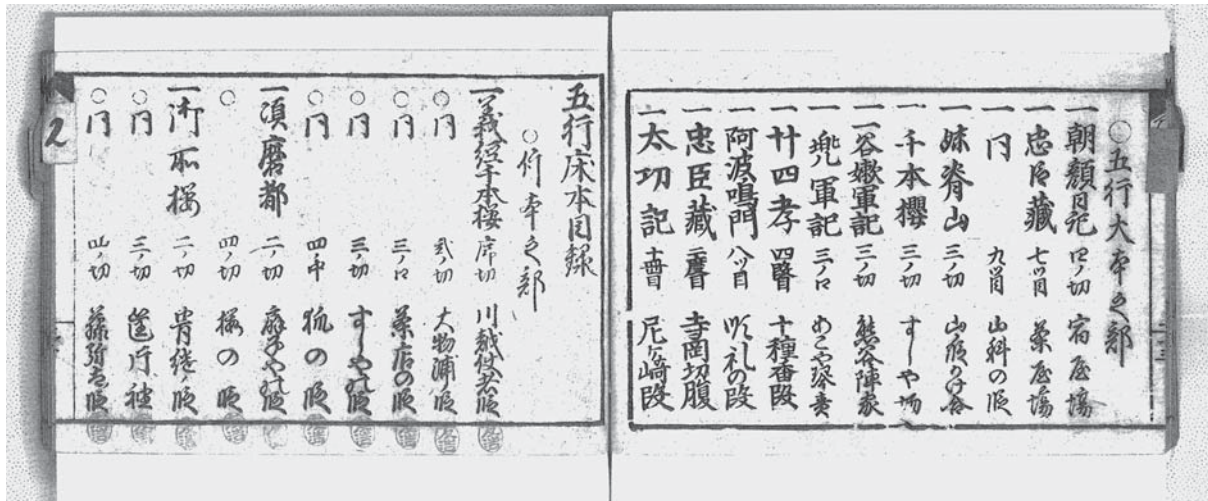 ○五行大本之部
一朝顔日記 四ノ切 宿屋場
一忠臣蔵 七ツ目 茶屋場
一同 九ツ目 山科の段
一妹脊山 三ノ切 山の段かけ合
一千本櫻 三ノ切 すしや場
一一谷嫩軍記 三ノ切 熊谷陣家
一兜軍記 三ノ口 あこや琴責
一廿四孝 四段目 十種香段
一阿波鳴門 八ツ目 順礼の段
一忠臣蔵 寺岡切腹
一太功記 十冊目 尼ヶ崎段
五行床本目録
○竹本之部
一義経千本桜 序切 川越使者段
○同 弐ノ切 大物浦ノ段
○同 三ノ口 茶店の段
○同 三ノ切 すしやの段
○同 四ノ中 狐の段
一須磨都 二ノ切 扇やの段
○ 四ノ切 桜の段
一御所桜 二ノ切 段
○同 三ノ切
○同 四ノ切 藤弥太段
2